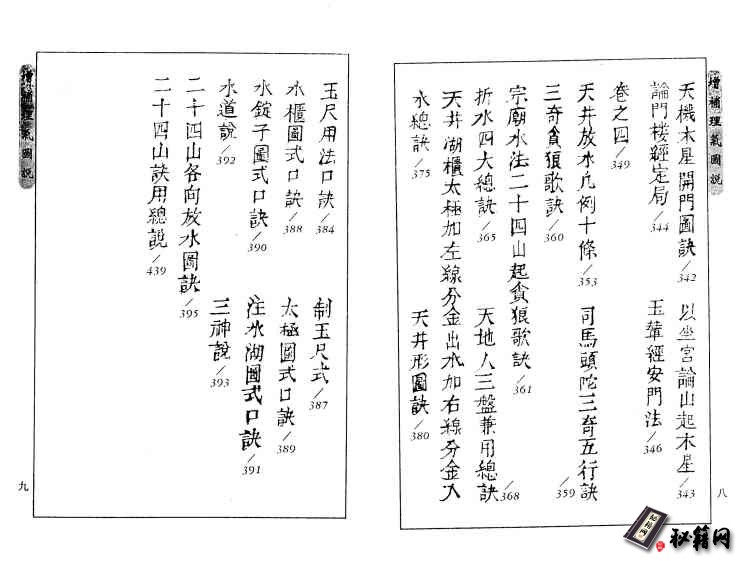 增補理氣圖說
天機木星開門圖訣/342
以坐宮論山起木星/343
論門楼經定局/344
玉輦經安門法/346
卷之四/349
天井放水凡例十條/353
司馬頭陀三奇五行訣/359
三奇貪狼歌訣/360
宗廟水法二十四山起貪狼歌訣/361
折水四大總訣/365
天地人三盤兼用總訣/368
天井湖櫃太極加左線分金出水加右線分金入
水總訣/375
天井形圖訣/380
八
玉尺用法口訣/384
制玉尺式/387
水櫃圖式口訣/388
太極圖式口訣/389
水錠子圖式口訣/390
注水湖圖式口訣/391
水道說/392
三神說/393
二十四山各向放水圖訣/395
二十四山訣用總說/439
增補理氣圖說
九
秘籍网